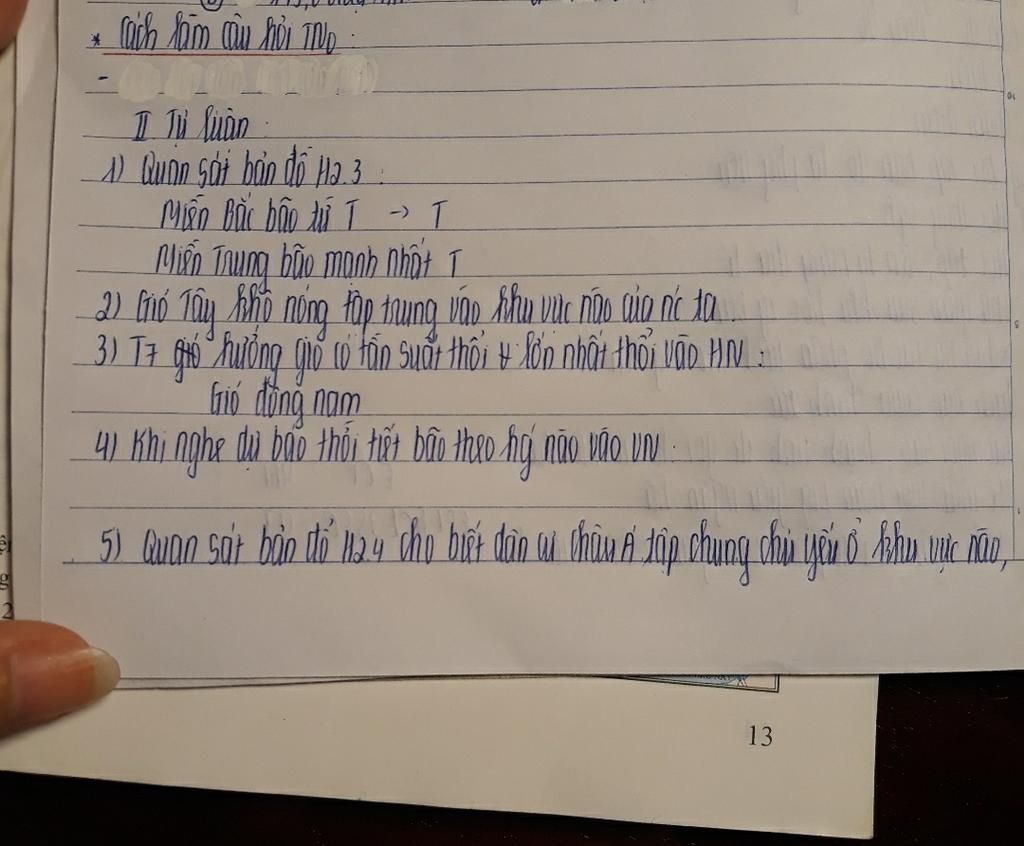 * Cách làm câu hỏi TNO
-
II Tự luận :
1) Quan sát bản đồ H2.3 :
Miền Bắc bão từ T -> T
Miền Trung bão mạnh nhất T
2) Gió Tây khô nóng tập trung vào khu vực nào của n'c ta.
3) T7 gió hướng gió có tần suất thổi lớn nhất thổi vào HN :
Gió đông nam
4) Khi nghe dự báo thời tiết bão theo hg' nào vào VN.
5) Quan sát bản đồ H2.4 cho biết dân cư châu Á tập chung chủ yếu ở khu vực nào,
13